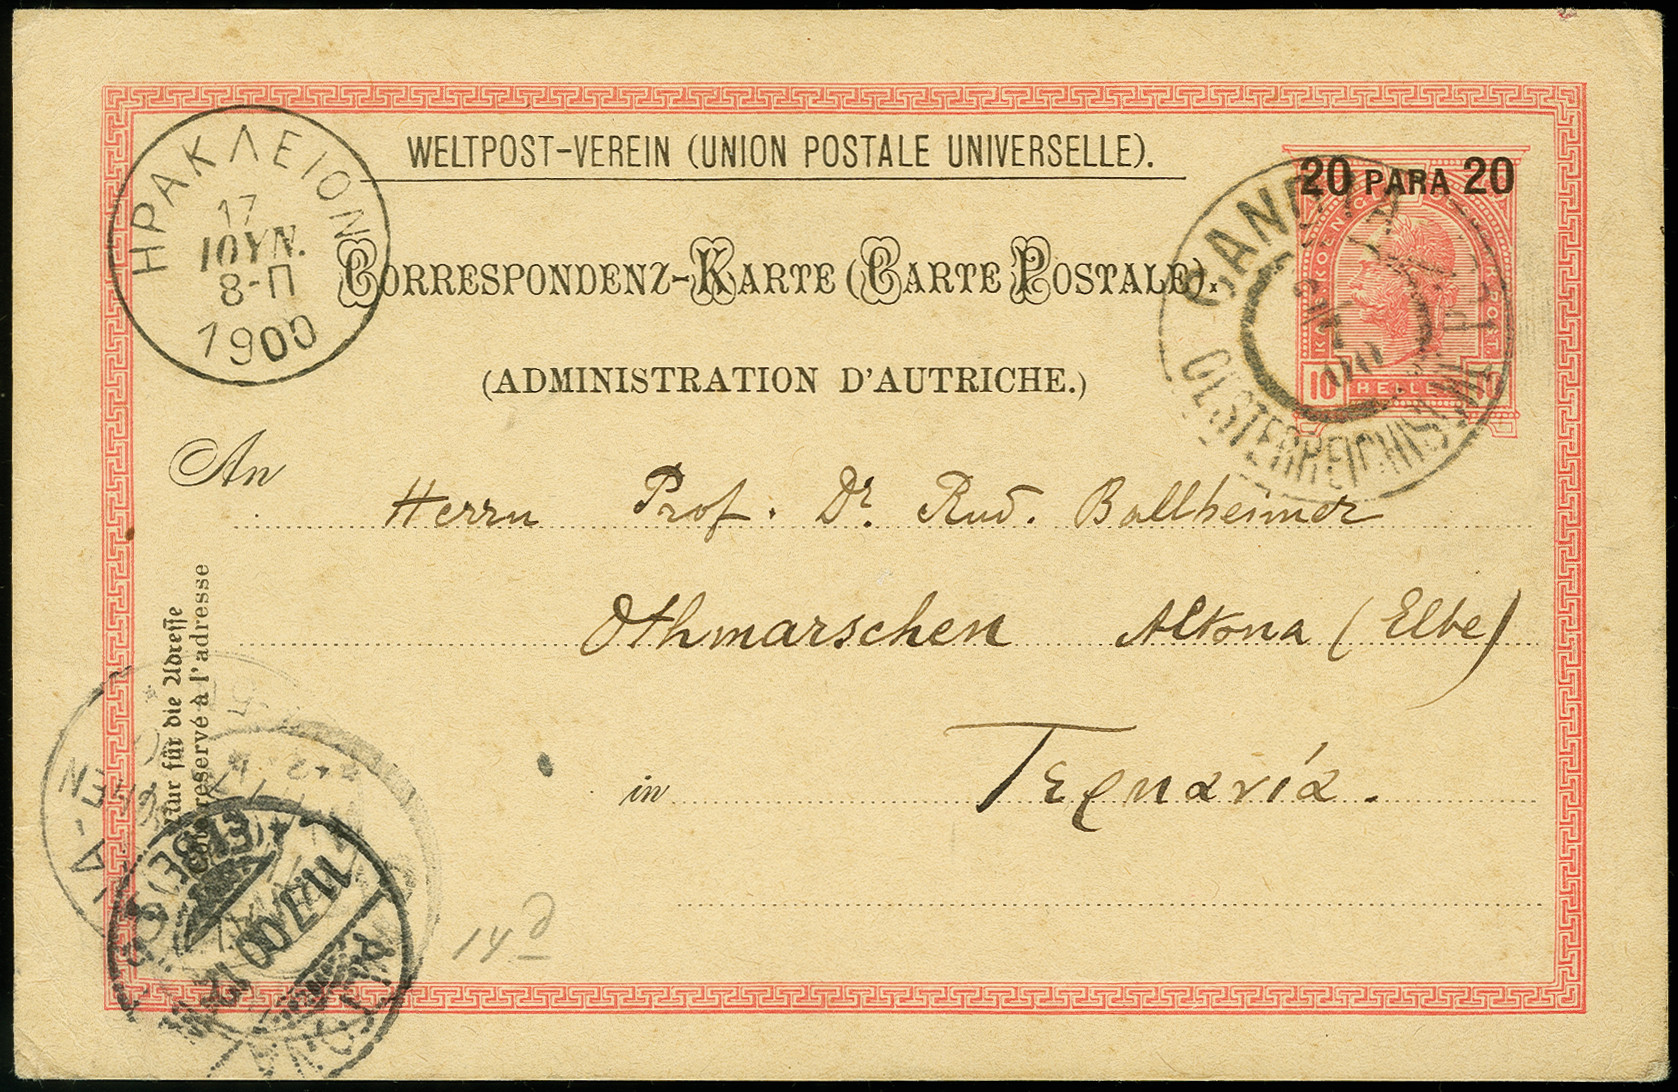 WELTPOST-VEREIN (UNION POSTALE UNIVERSELLE).
20 PARA 20
ΗΡΑΚΛΕΙΟΝ
17
ΙΟΥΝ.
8-Π
1900
CORRESPONDENZ-KARTE (CARTE POSTALE).
CANDIA
OESTERREICHISCHE POST
00
10 HELLER 10
(ADMINISTRATION D'AUTRICHE.)
An
Herrn Prof. Dr. Rud. Ballheimer
Othmarschen Altona (Elbe)
in Γερμανία.
Nur für die Adresse
Côté réservé à l'adresse
ALTONA
(ELBE)
11.7.00
14